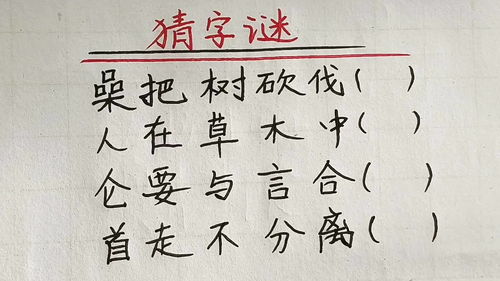 猜字谜
喿把树砍伐( )
人在草木中( )
仑要与言合( )
首走不分离( )